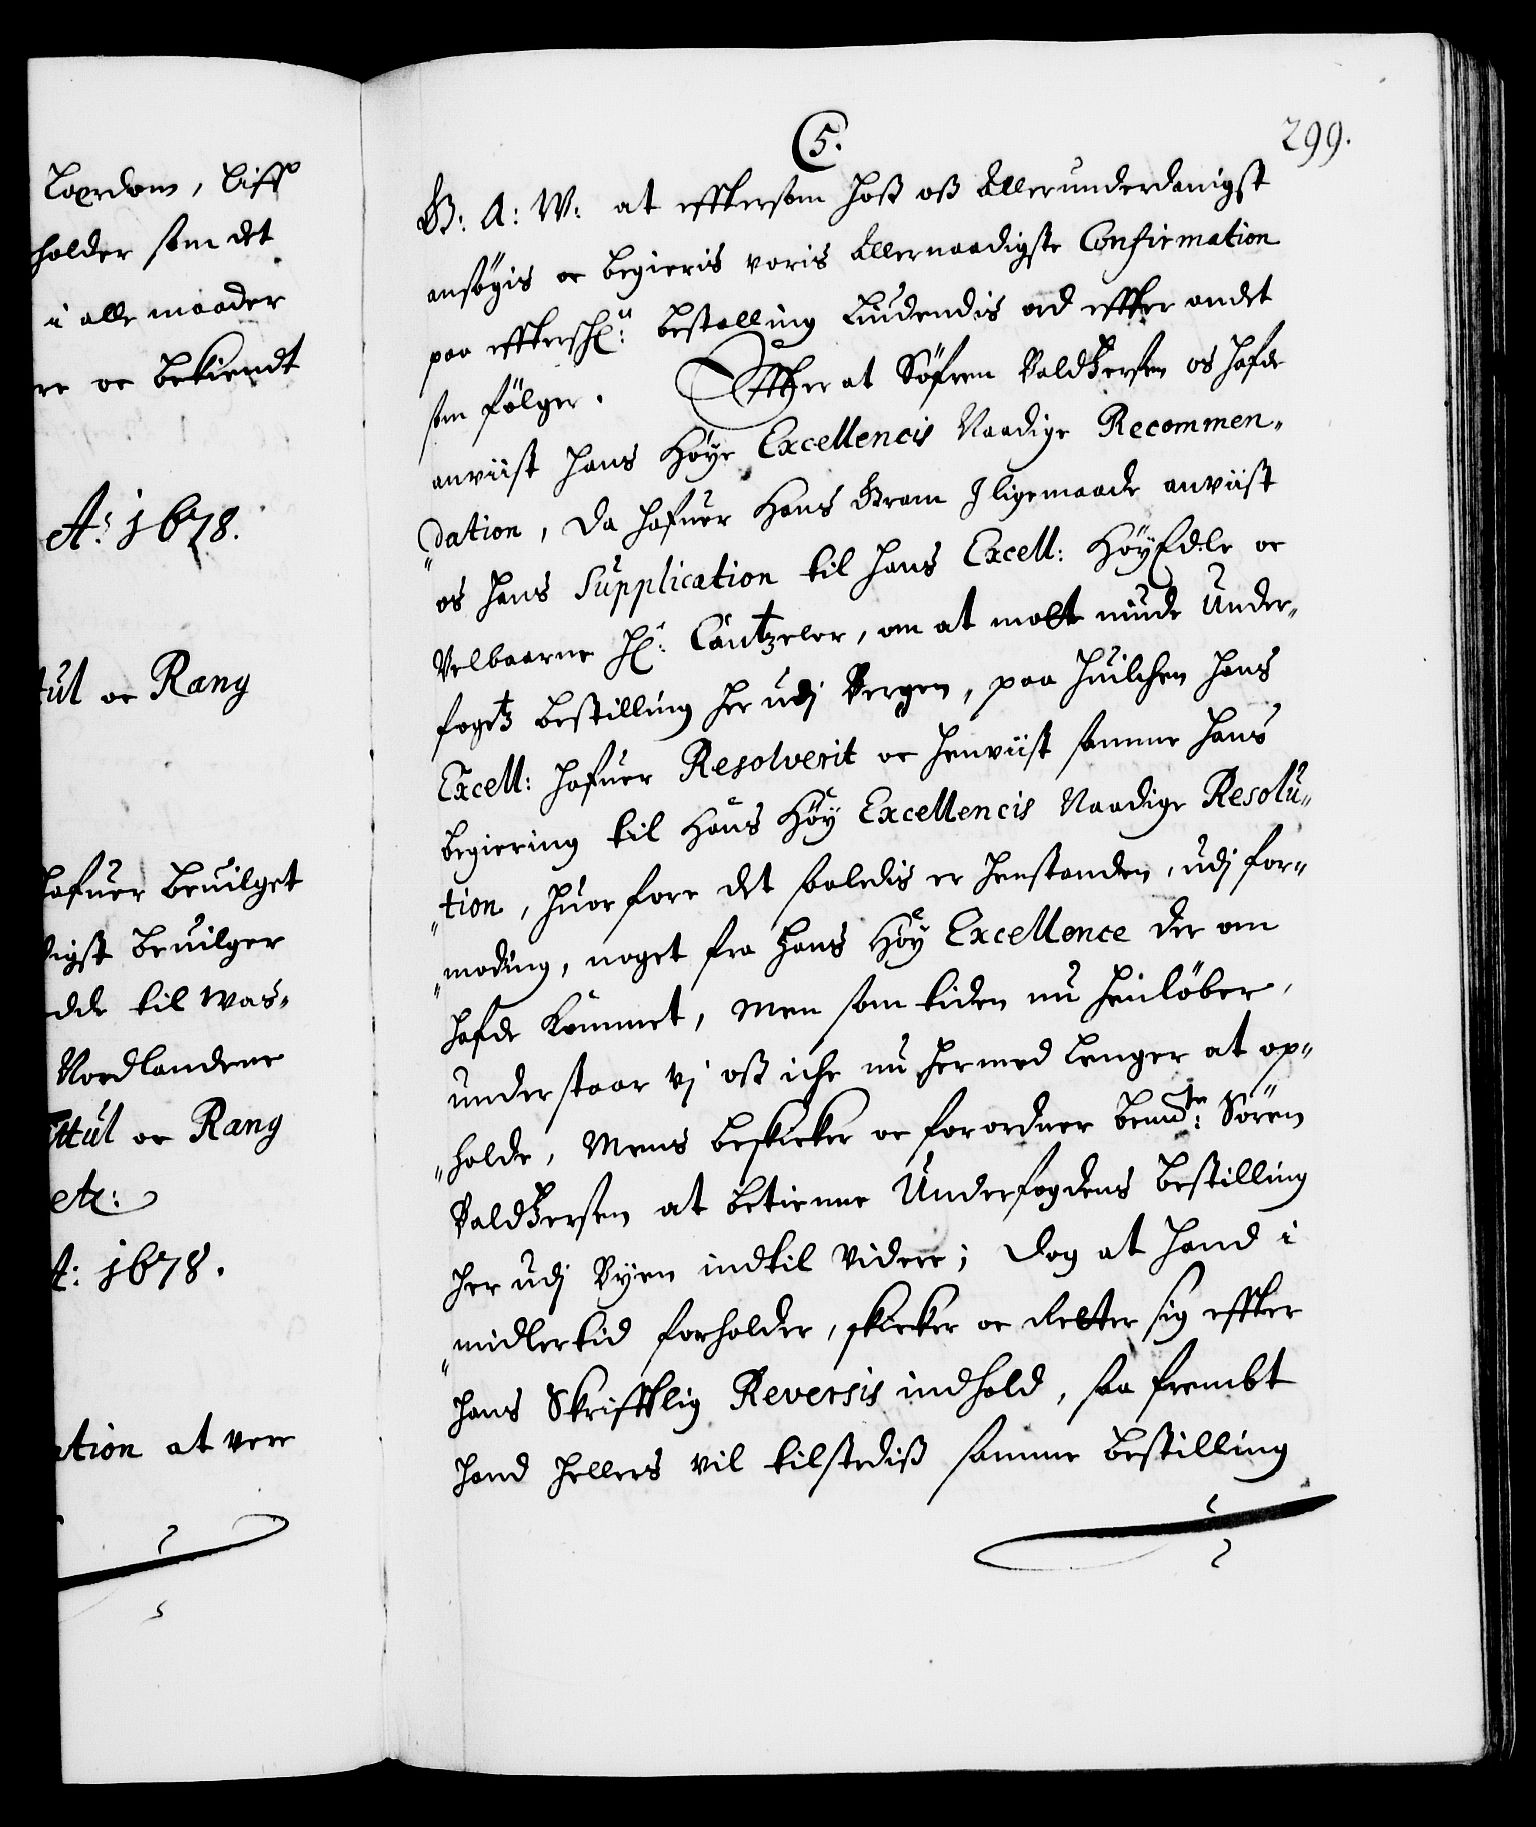 Lærdom, Liff
holder som det
i alle maader
re oc bekiendt
Aº 1678.
tul oc Rang
hafuer beuilget
digst beuilger
dde til Was-
Nordlandene
Tittul oc Rang
etc:
A: 1678.
ation at vere
5.
299.
G: A: W: at efftersom hoß oß Allerunderdanigst
ansøgis oc begieris voris Allernaadigste Confirmation
paa effterschr: bestalling Liudendis ord effter andet
som følger. Effter at Søfren Baldtzersen os hafde
anviist hans Høye Excellencis Naadige Recommen-
dation, da hafuer Hans Gram Iligemaade anviist
os hans Supplication til hans Excell: HøyEdle oc
Velbaarne Hr: Cantzeler, om at motte niude Under-
fogetz bestilling her udj Bergen, paa huilchen hans
Excell: hafuer Resolverit oc henviist samme hans
begiering til Hans Høy Excellencis Naadige Resolu-
tion, huorfore det saaledis er henstanden, udj for-
moding, noget fra Hans Høy Excellence der om
hafde kommet, Men som tiden nu henløber,
understaar vj oß iche nu hermed lenger at op-
holde, Mens beskicker oc forordner bemdte: Søren
Baldtzersen at betienne Underfogdens bestilling
her udj Byen indtil videre; dog at hand i
midlertid forholder, skicker oc Retter sig effter
hans Skrifftlig Reversis indhold, saa frembt
hand hellers vil tilstediß samme bestilling